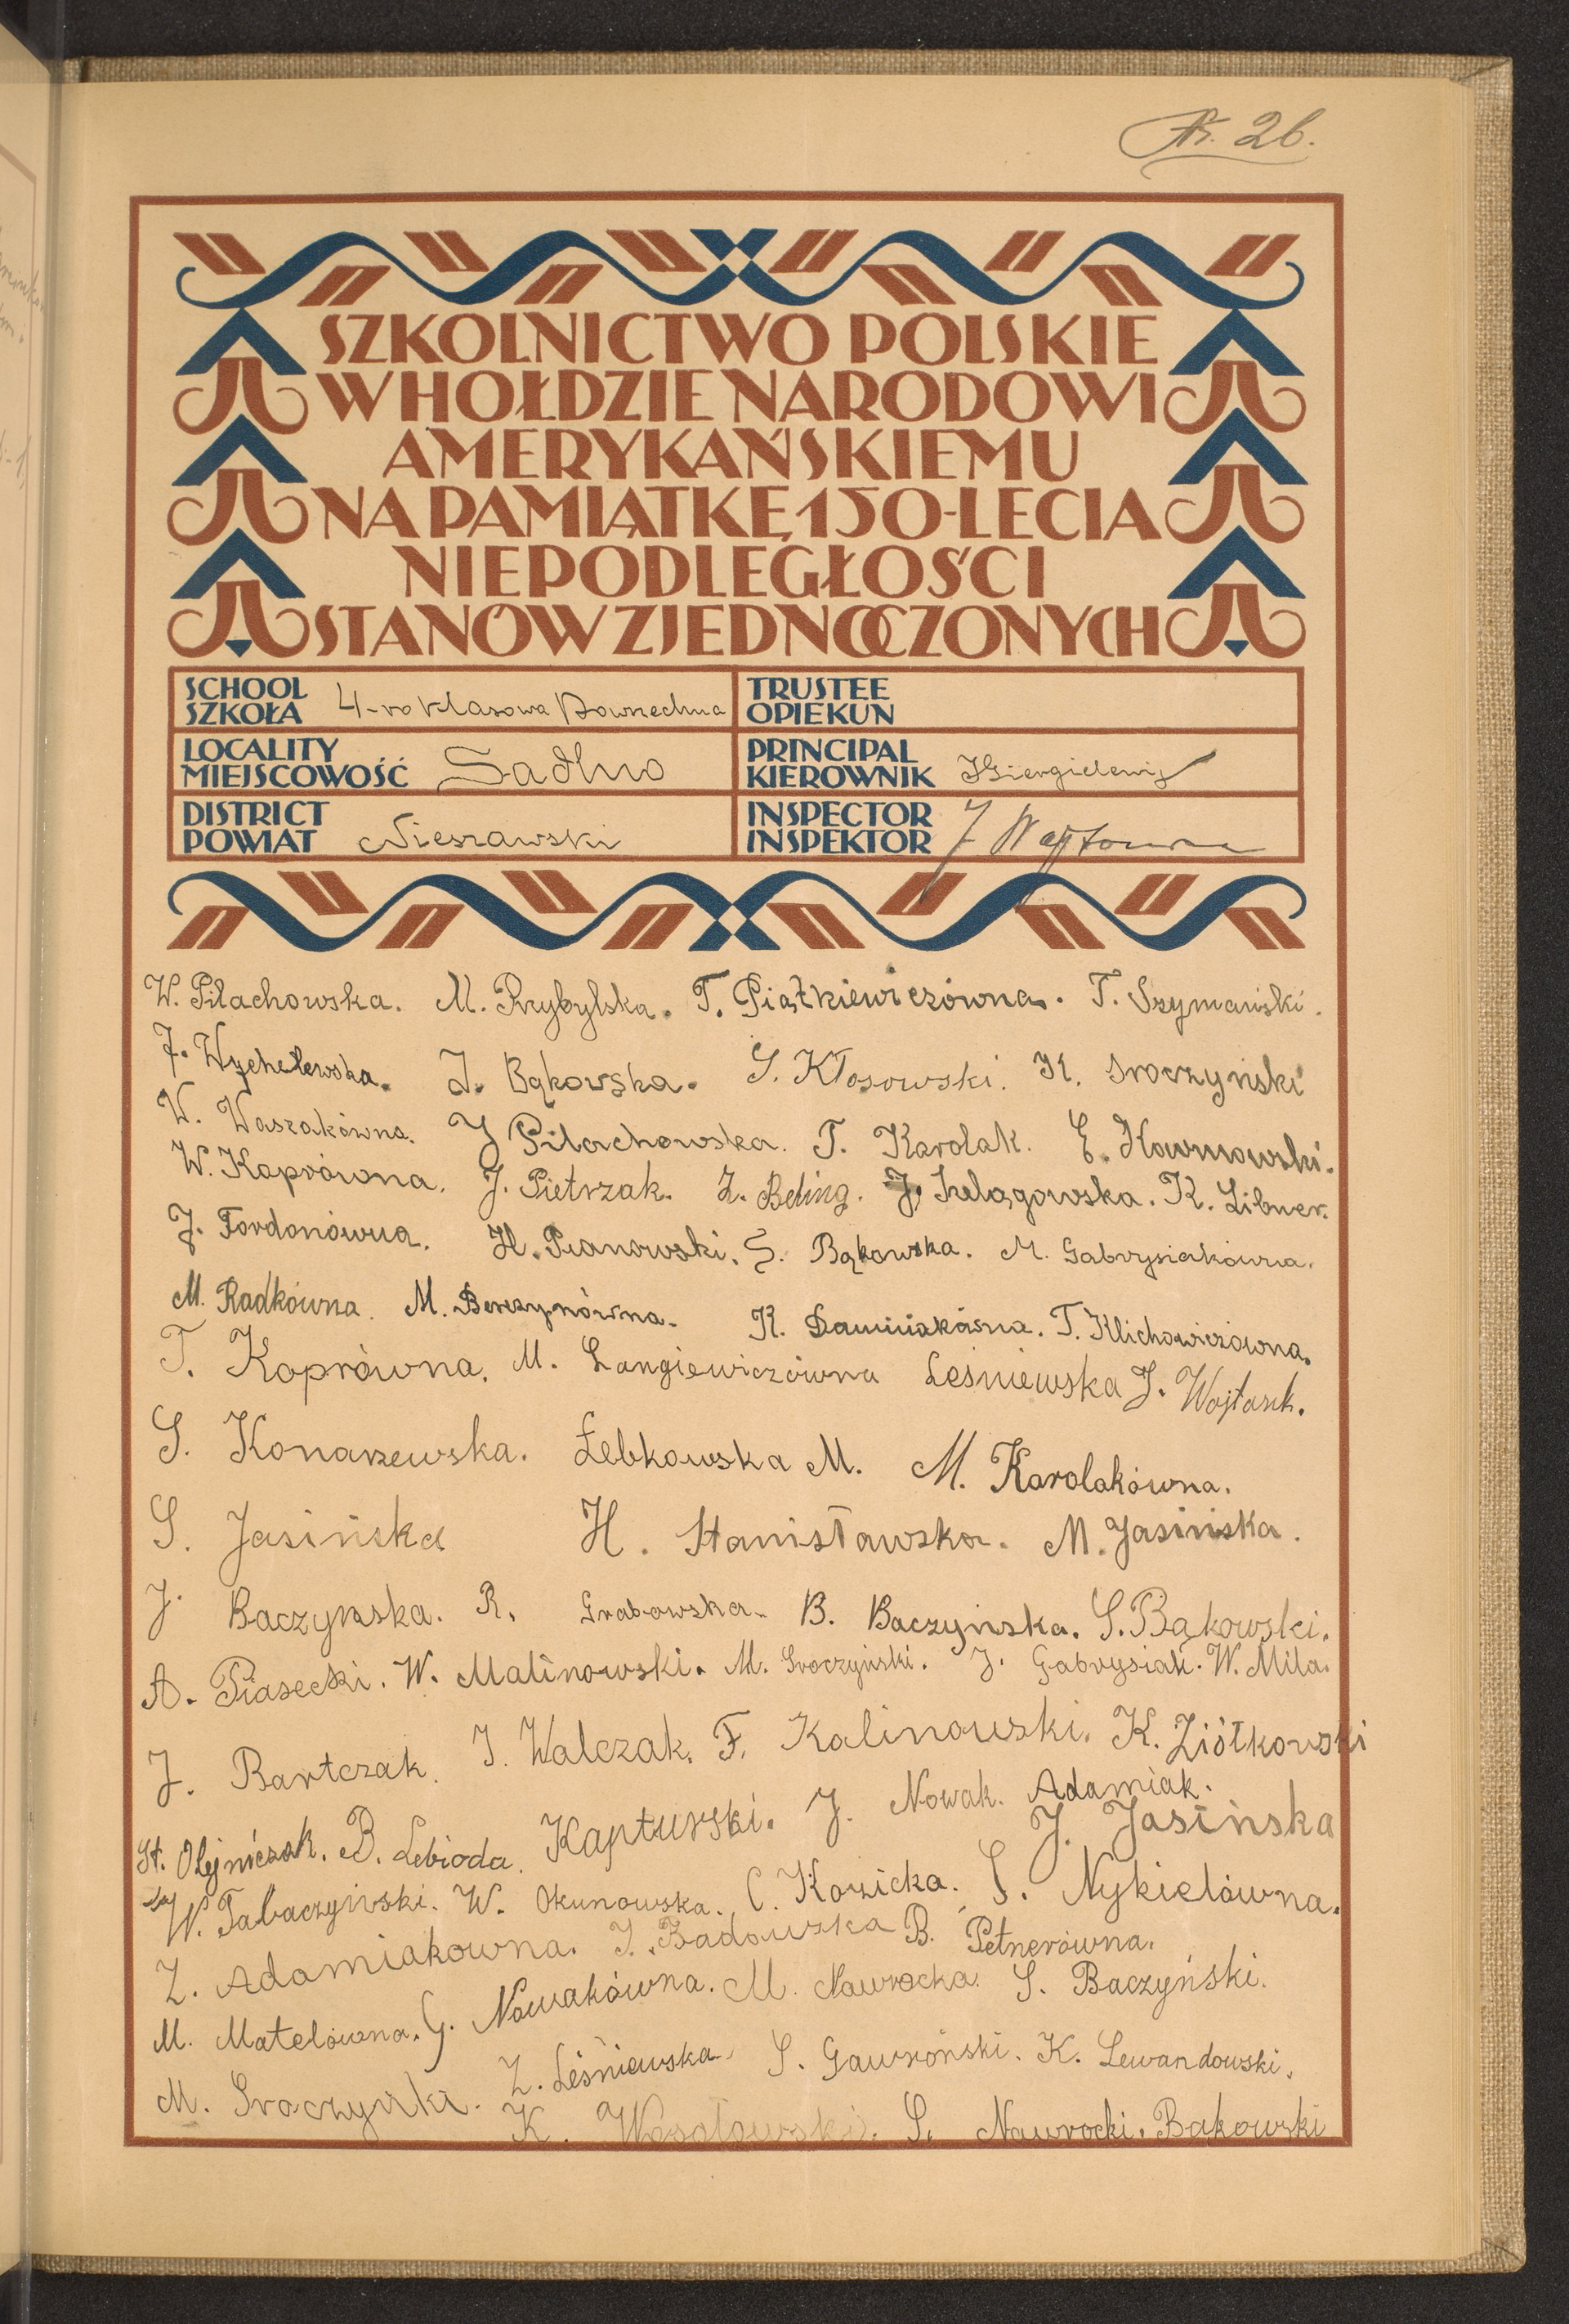 26.
SZKOLNICTWO POLSKIE
W HOŁDZIE NARODOWI
AMERYKAŃSKIEMU
NA PAMIĄTKĘ 150-LECIA
NIEPODLEGŁOŚCI
STANÓW ZJEDNOCZONYCH
SCHOOL
SZKOŁA 4-ro klasowa Powszechna
TRUSTEE
OPIEKUN
LOCALITY
MIEJSCOWOŚĆ Sadlno
PRINCIPAL
KIEROWNIK
DISTRICT
POWIAT Nieszawski
INSPECTOR
INSPEKTOR J
W. Pilachowska. M. Przybylska. T. Piątkiewiczówna. T. Szymański.
J. Wychelewska. J. Bąkowska. S. Kłosowski. K. Sroczyński
W. Waszakówna. J Pilachowska. T. Karolak. E.
W. Koprówna. J. Pietrzak. Z. Beling. J. Szelągowska. K. Libner.
J. Fordonówna. H. Pianowski. S. Bąkowska. M. Gabrysiakówna.
M. Radkówna. M. K. T. Klichowiczówna.
T. Koprówna. M. Langiewiczówna Leśniewska J. Wojtasek.
S. Konarzewska. Łebkowska M. M. Karolakówna.
S. Jasińska H. Stanisławska. M. Jasińska.
J. Baczyńska. R. Grabowska. B. Baczyńska. S. Bąkowski.
A. Piasecki. W. Malinowski. M. Sroczyński. J. Gabrysiak. W. Mila.
J. Bartczak. J. Walczak. F. Kalinowski. K. Ziółkowski
St. Olejniczak. B. Lebioda. Kapturski. J. Nowak. Adamiak.
J. Jasińska
W. Tabaczyński. W. Okunowska. C. Kozicka. S. Nykielówna.
Z. Adamiakowna. J. Badowska B. Petnerówna.
M. Matelówna. G. Nowakówna. M. Nawrocka. S. Baczyński.
M. Sroczyński. Z. Leśniewska S. Gawroński. K. Lewandowski.
K. Wesołowski. S. Nawrocki. Bąkowski